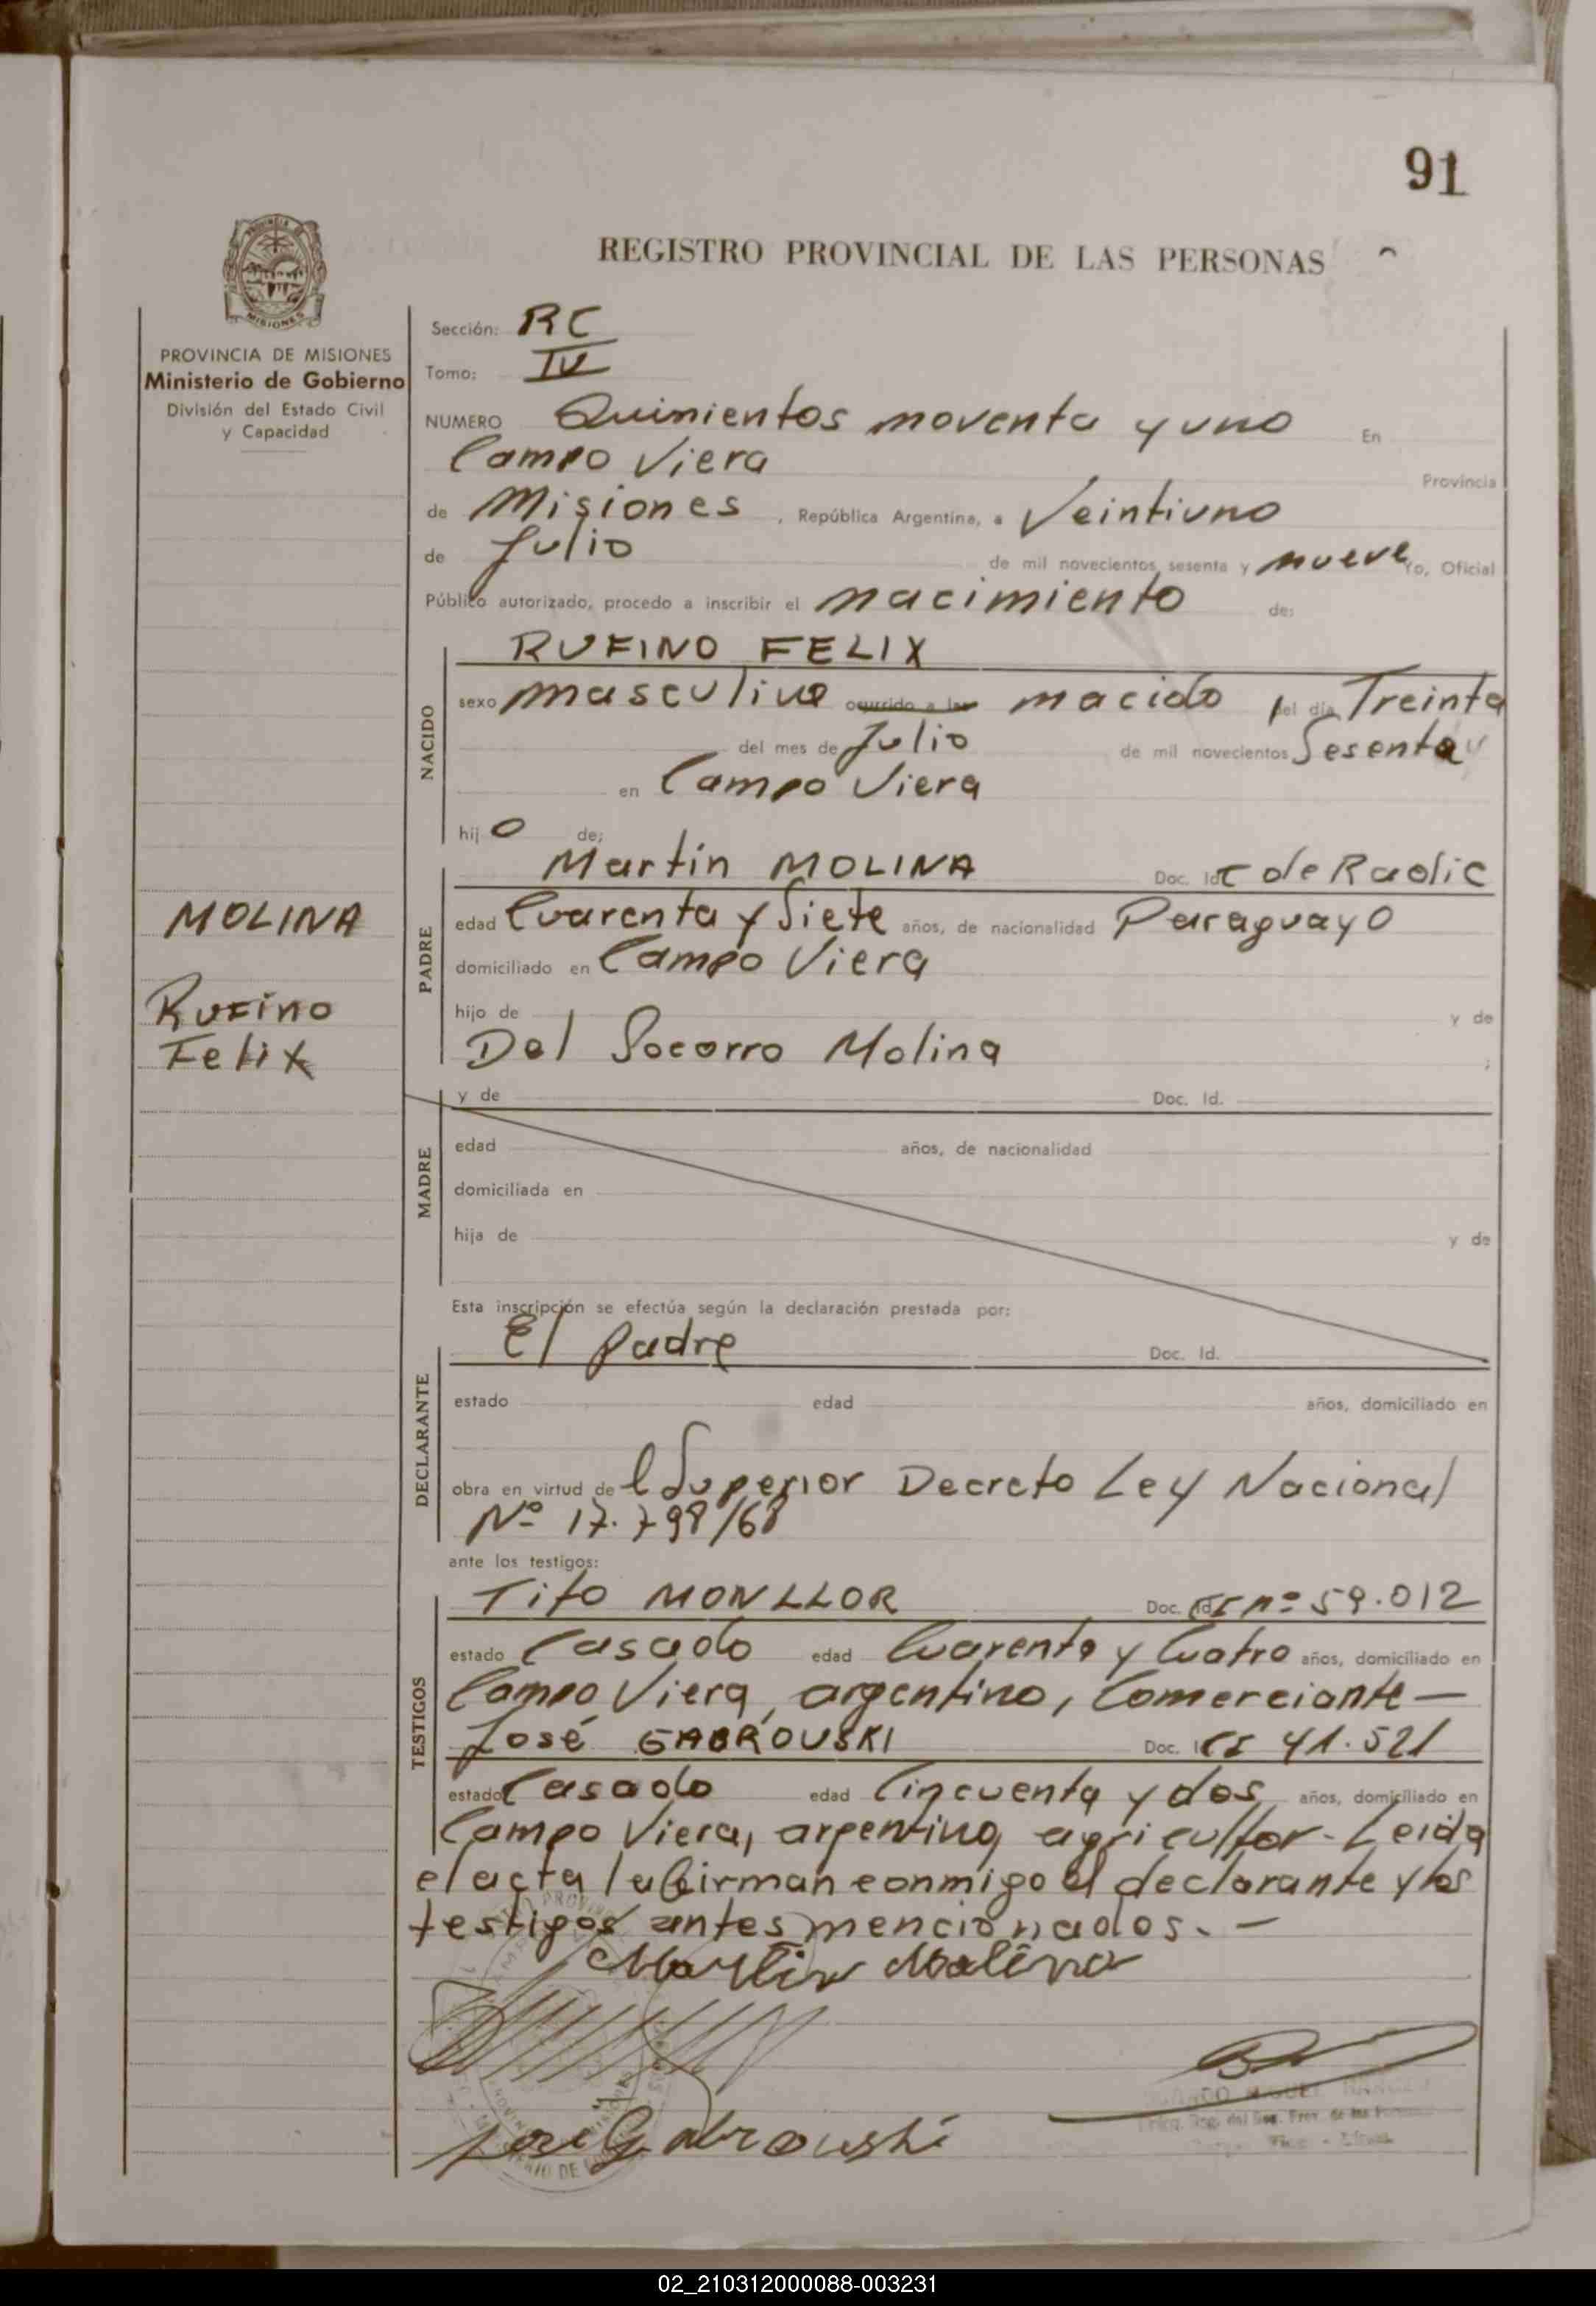 91
REGISTRO PROVINCIAL DE LAS PERSONAS
MISIONES
PROVINCIA DE MISIONES
Ministerio de Gobierno
División del Estado Civil
y Capacidad
Sección: RC
Tomo: IV
NUMERO Quinientos noventa y uno En
Campo Viera Provincia
de Misiones, República Argentina, a Veintiuno
de Julio de mil novecientos sesenta y nueve Yo, Oficial
Público autorizado, procedo a inscribir el nacimiento de:
NACIDO
RUFINO FELIX
sexo masculino ocurrido a las nacido el día Treinta
del mes de Julio de mil novecientos Sesenta y
en Campo Viera
hijo de;
MOLINA
Rufino
Felix
PADRE
Martin MOLINA Doc. Id. C de Radic
edad Cuarenta y Siete años, de nacionalidad Paraguayo
domiciliado en Campo Viera
hijo de y de
Del Socorro Molina ;
MADRE
y de Doc. Id.
edad años, de nacionalidad
domiciliada en
hija de y de
Esta inscripción se efectúa según la declaración prestada por:
DECLARANTE
El padre Doc. Id.
estado edad años, domiciliado en
obra en virtud del Superior Decreto Ley Nacional
Nº 17.798/68
ante los testigos:
TESTIGOS
Tito MONLLOR Doc. Id. nº 59.012
estado Casado edad Cuarenta y Cuatro años, domiciliado en
Campo Viera, argentino, Comerciante —
José GABROUSKI Doc. 41.521
estado Casado edad Cincuenta y dos años, domiciliado en
Campo Viera, argentino, agricultor - Leida
el acta la firman conmigo el declarante y los
testigos antes mencionados. —
Martin Molina
Jose Gabrouski
02_210312000088-003231